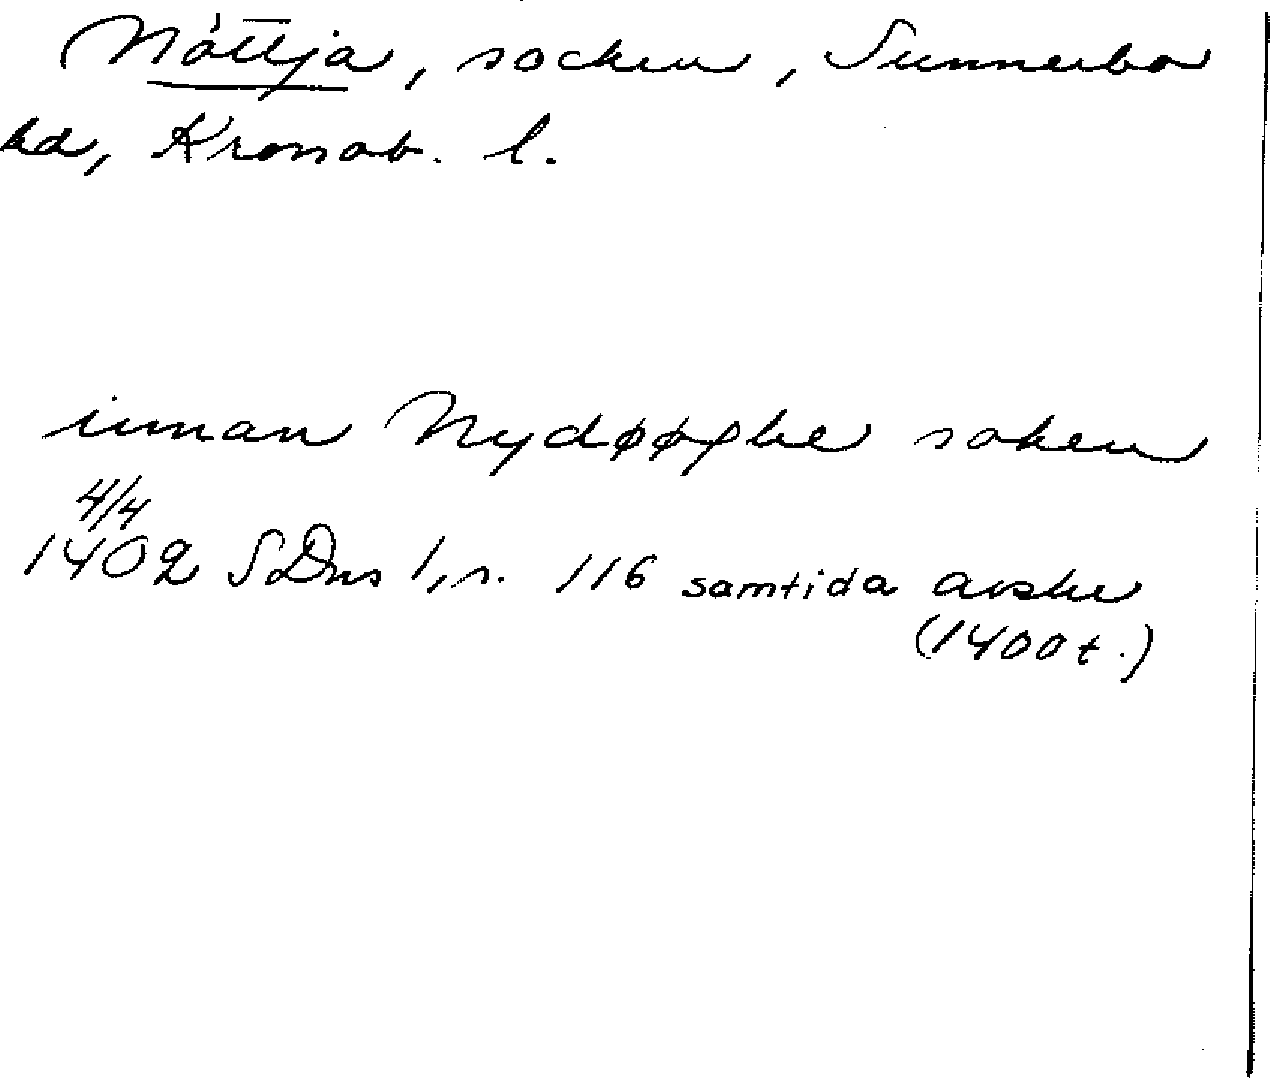 Nöttja, socken, Sunnerbo
hd, Kronob. l.
innan Nydøøghe soken
4/4
1402 SDns 1, s. 116 samtida avskr
(1400 t.)